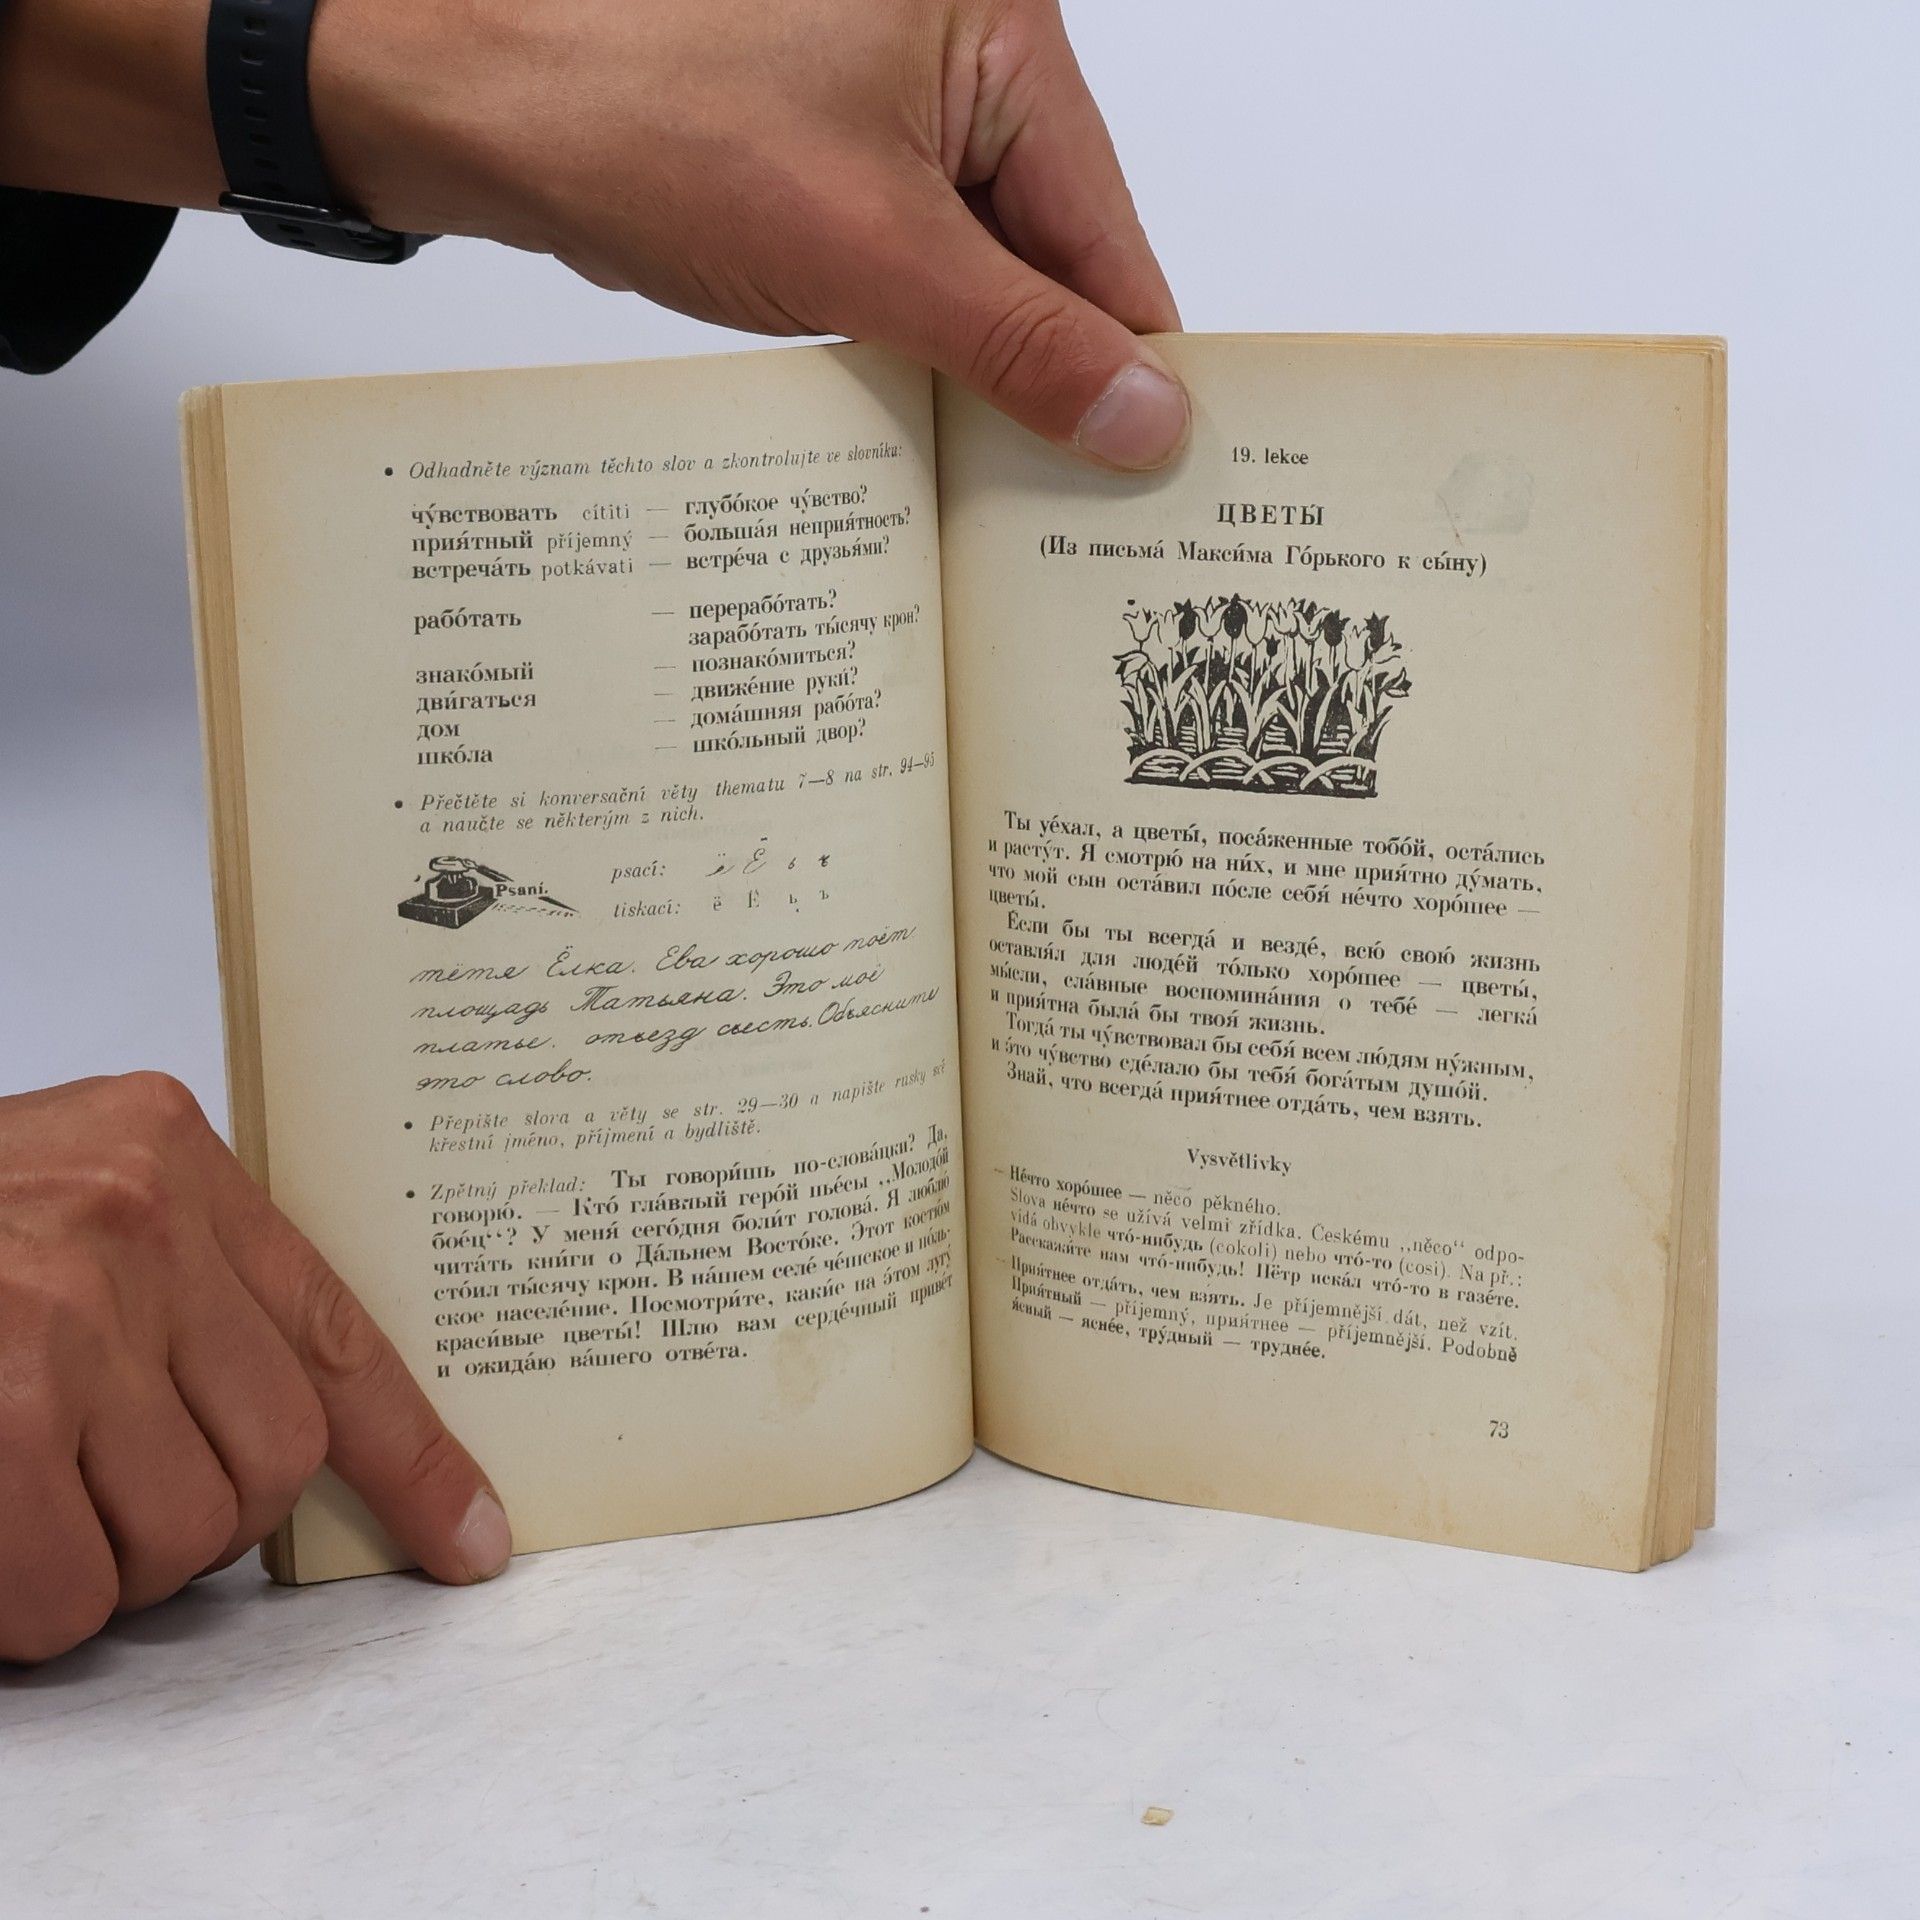 • Odhadněte význam těchto slov a zkontrolujte ve slovníku:
чу́вствовать cítiti — глубо́кое чу́вство?
прия́тный příjemný — больша́я неприя́тность?
встреча́ть potkávati — встре́ча с друзья́ми?
рабо́тать — перерабо́тать?
зарабо́тать ты́сячу крон?
знако́мый — познако́миться?
дви́гаться — движе́ние руки́?
дом — дома́шняя рабо́та?
шко́ла — шко́льный двор?
• Přečtěte si konversační věty thematu 7—8 na str. 94—95
a naučte se některým z nich.
Psaní.
psací: ё Ё ь ъ
tiskací: ё Ё ь ъ
тётя Ёлка. Ева хорошо поёт
площадь Татьяна. Это моё
платье. отъезд съесть. Объясните
это слово.
• Přepište slova a věty se str. 29—30 a napište rusky své
křestní jméno, příjmení a bydliště.
• Zpětný překlad: Ты говори́шь по-слова́цки? Да,
говорю́. — Кто́ гла́вный геро́й пье́сы „Молодо́й
бое́ц“? У меня́ сего́дня боли́т голова́. Я люблю́
чита́ть кни́ги о Да́льнем Восто́ке. Этот костю́м
сто́ил ты́сячу крон. В на́шем селе́ че́шское и по́ль-
ское населе́ние. Посмотри́те, каки́е на э́том лугу́
краси́вые цветы́! Шлю вам серде́чный приве́т
и ожида́ю ва́шего отве́та.
19. lekce
ЦВЕТЫ́
(Из письма́ Макси́ма Го́рького к сы́ну)
Ты уе́хал, а цветы́, поса́женные тобо́й, оста́лись
и расту́т. Я смотрю́ на ни́х, и мне прия́тно ду́мать,
что мой сын оста́вил по́сле себя́ не́что хоро́шее —
цветы́.
Е́сли бы ты всегда́ и везде́, всю́ свою́ жизнь
оставля́л для люде́й то́лько хоро́шее — цветы́,
мы́сли, сла́вные воспомина́ния о тебе́ — легка́
и прия́тна была́ бы твоя́ жизнь.
Тогда́ ты чу́вствовал бы себя́ всем лю́дям ну́жным,
и э́то чу́вство сде́лало бы тебя́ бога́тым душо́й.
Знай, что всегда́ прия́тнее отда́ть, чем взять.
Vysvětlivky
Не́что хоро́шее — něco pěkného.
Slova не́что se užívá velmi zřídka. Českému „něco“ odpo-
vídá obvykle что́-нибудь (cokoli) nebo что́-то (cosi). Na př.:
Расскажи́те нам что́-нибудь! Пётр иска́л что́-то в газе́те.
Прия́тнее отда́ть, чем взять. Je příjemnější dát, než vzít.
Прия́тный — příjemný, прия́тнее — příjemnější. Podobně
я́сный — ясне́е, тру́дный — трудне́е.
73